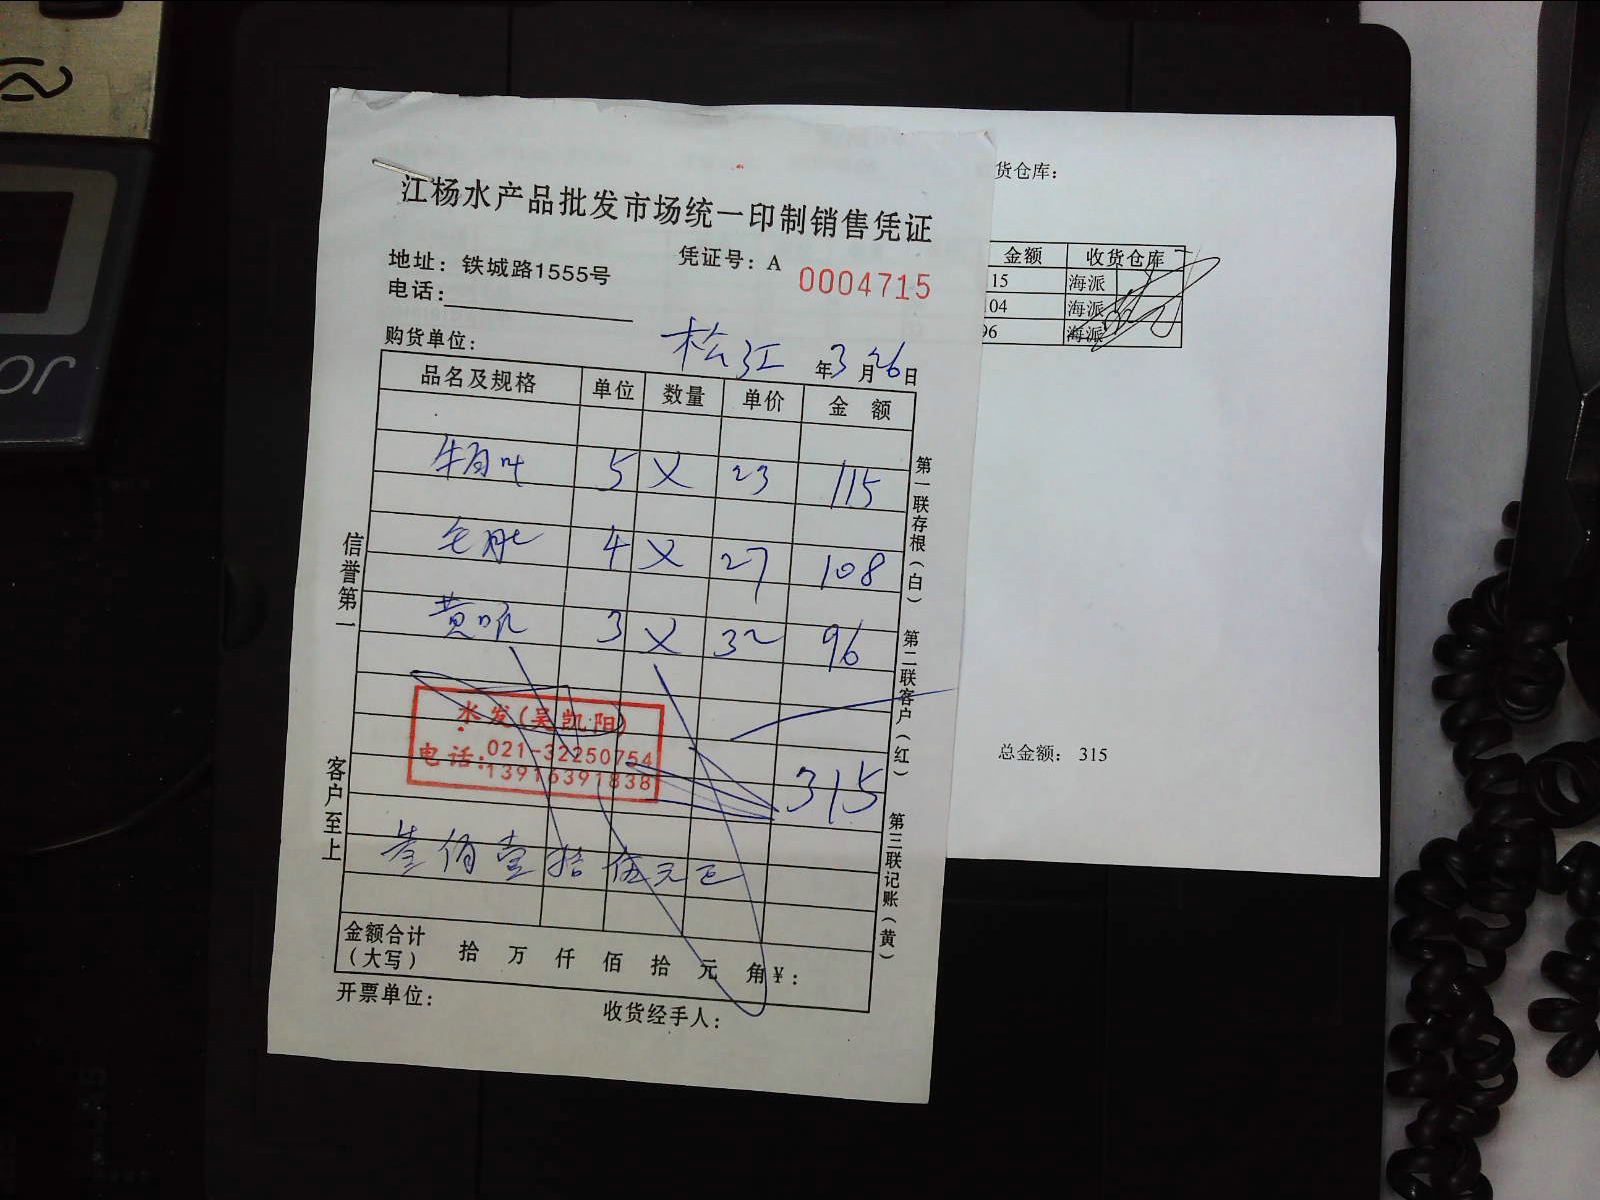 江杨水产品批发市场统一印制销售凭证
地址：铁城路1555号
凭证号：A 0004715
电话：
购货单位： 松江 年3月26日
品名及规格 单位 数量 单价 金额
牛百叶 5 × 23 115
毛肚 4 × 27 108
黄喉 3 × 32 96
水发(吴凯阳)
电话：021-32250754
13916391838
315
叁佰壹拾伍元正
金额合计（大写） 拾 万 仟 佰 拾 元 角￥：
开票单位： 收货经手人：
信誉第一
客户至上
第一联存根（白）
第二联客户（红）
第三联记账（黄）
货仓库：
金额 收货仓库
15 海派
04 海派
96 海派
总金额： 315